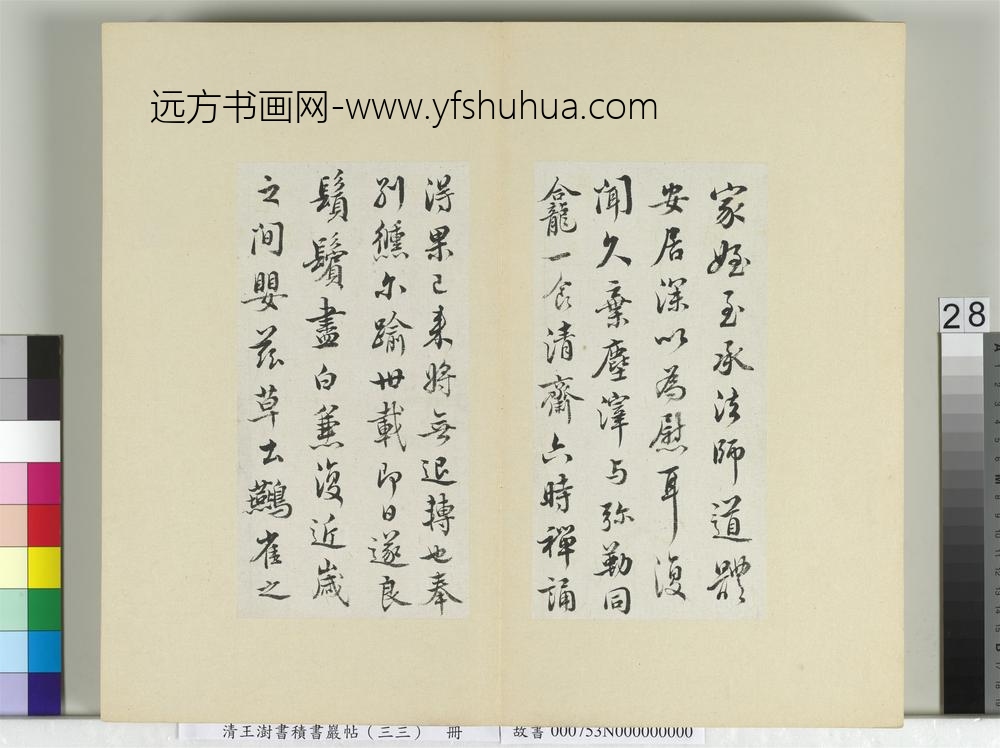 远方书画网-www.yfshuhua.com
家姪至承法師道體
安居深以為慰耳復
聞久棄塵滓与弥勒同
龕一食清齋六時禪誦
得果已来將無退轉也奉
別𫄸尔踰卌載即日遂良
鬚鬢盡白兼復近歲
之間嬰茲草土鷰雀之
28
清王澍書積書巖帖（三三） 冊
故書 000753N000000000